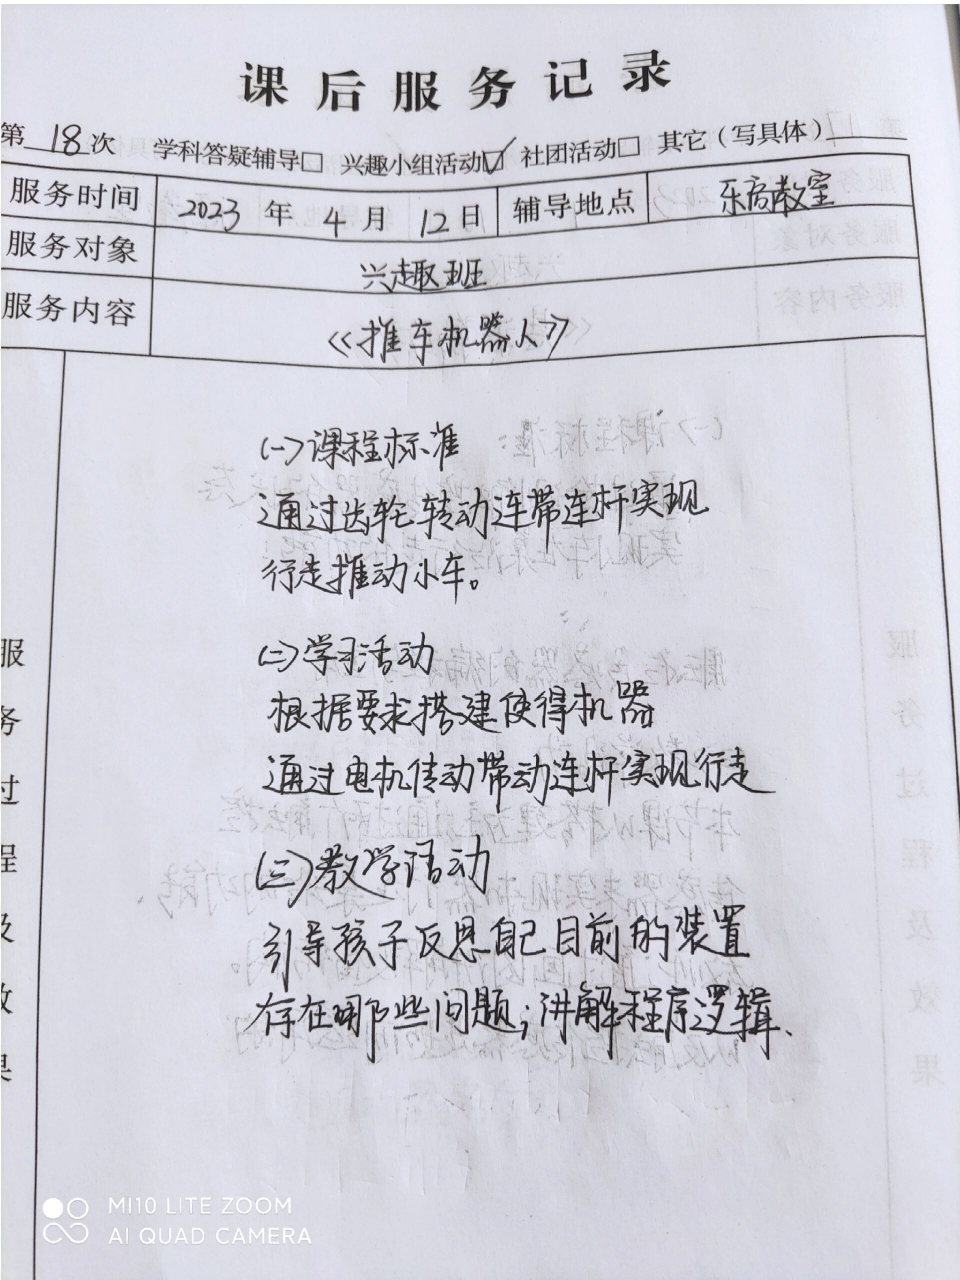 课后服务记录
第18次 学科答疑辅导□ 兴趣小组活动☑ 社团活动□ 其它（写具体）
服务时间 2023年4月12日 辅导地点 乐高教室
服务对象 兴趣班
服务内容 《推车机器人》
服务过程及效果
(一)课程标准
通过齿轮转动连带连杆实现
行走推动小车。
(二)学习活动
根据要求搭建使得机器
通过电机传动带动连杆实现行走
(三)教学活动
引导孩子反思自己目前的装置
存在哪些问题;讲解程序逻辑.
MI 10 LITE ZOOM
AI QUAD CAMERA